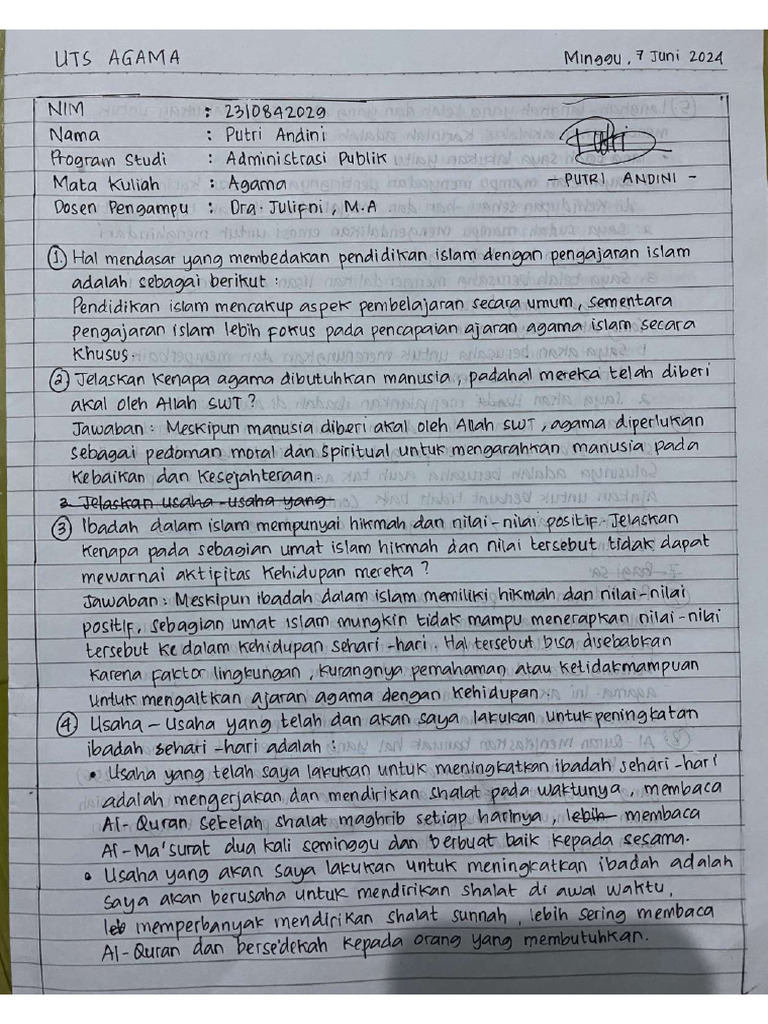 UTS AGAMA
Minggu, 7 Juni 2024
NIM : 2310842029
Nama : Putri Andini
Program Studi : Administrasi Publik
Mata Kuliah : Agama
Dosen Pengampu : Dra. Julifni, M.A
Putri
- PUTRI ANDINI -
1. Hal mendasar yang membedakan pendidikan islam dengan pengajaran islam
adalah sebagai berikut :
Pendidikan islam mencakup aspek pembelajaran secara umum, sementara
pengajaran islam lebih fokus pada pencapaian ajaran agama islam secara
khusus.
2 Jelaskan kenapa agama dibutuhkan manusia, padahal mereka telah diberi
akal oleh Allah SWT ?
Jawaban : Meskipun manusia diberi akal oleh Allah SWT, agama diperlukan
sebagai pedoman moral dan spiritual untuk mengarahkan manusia pada
kebaikan dan kesejahteraan.
2. Jelaskan usaha-usaha yang
3 Ibadah dalam islam mempunyai hikmah dan nilai-nilai positif. Jelaskan
kenapa pada sebagian umat islam hikmah dan nilai tersebut tidak dapat
mewarnai aktifitas kehidupan mereka ?
Jawaban : Meskipun ibadah dalam islam memiliki hikmah dan nilai-nilai
positif, sebagian umat islam mungkin tidak mampu menerapkan nilai-nilai
tersebut ke dalam kehidupan sehari-hari. Hal tersebut bisa disebabkan
karena faktor lingkungan, kurangnya pemahaman atau ketidakmampuan
untuk mengaitkan ajaran agama dengan kehidupan.
4 Usaha-usaha yang telah dan akan saya lakukan untuk peningkatan
ibadah sehari-hari adalah :
• Usaha yang telah saya lakukan untuk meningkatkan ibadah sehari-hari
adalah mengerjakan dan mendirikan shalat pada waktunya, membaca
Al-Quran setelah shalat maghrib setiap harinya, lebih membaca
Al-Ma'surat dua kali seminggu dan berbuat baik kepada sesama.
• Usaha yang akan saya lakukan untuk meningkatkan ibadah adalah
saya akan berusaha untuk mendirikan shalat di awal waktu,
leb memperbanyak mendirikan shalat sunnah, lebih sering membaca
Al-Quran dan bersedekah kepada orang yang membutuhkan.